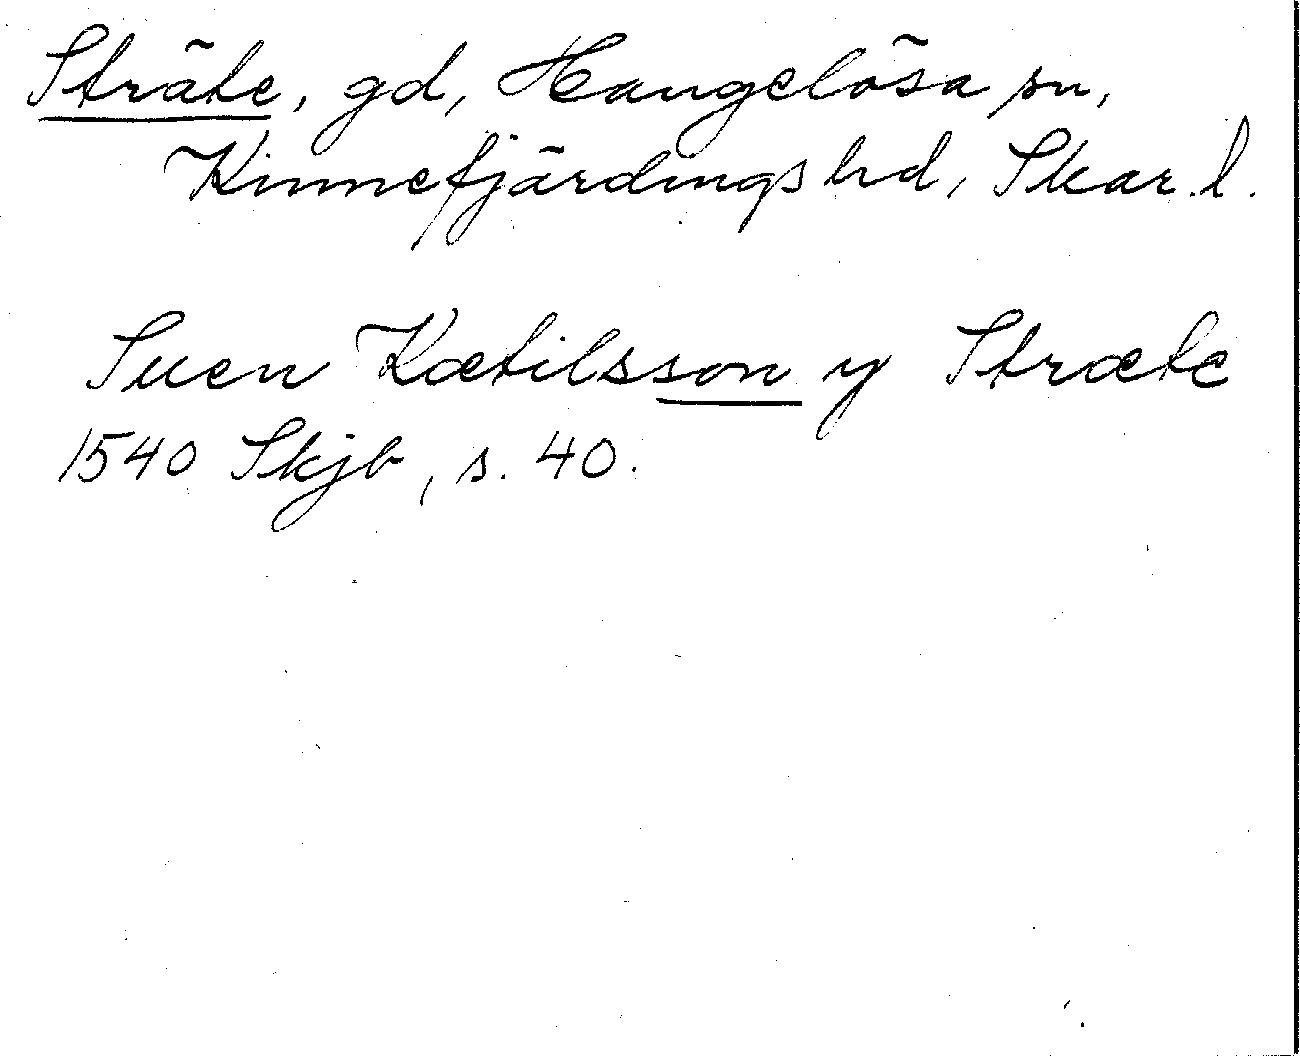 Sträte, gd, Hangelösa sn,
Kinnefjärdings hd, Skar. l.
Suen Kætilsson y Stræte
1540 Skjb, s. 40.